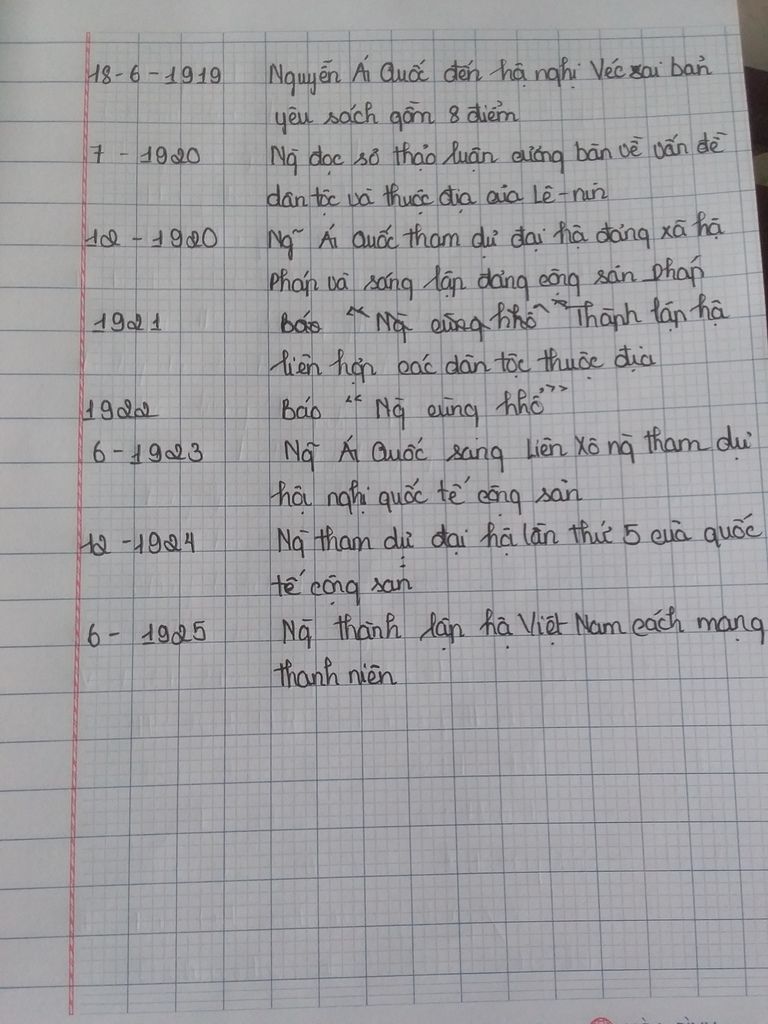 18-6-1919 Nguyễn Ái Quốc đến hội nghị Véc xai bản
yêu sách gồm 8 điểm
7-1920 Ng̃ đọc sơ thảo luận cương bàn về vấn đề
dân tộc và thuộc địa của Lê-nin
12-1920 Ng̃ Ái Quốc tham dự đại hội đảng xã hội
Pháp và sáng lập đảng cộng sản Pháp
1921 Báo " Ng̃ cùng khổ " Thành lập hội
liên hợp các dân tộc thuộc địa
1922 Báo " Ng̃ cùng khổ "
6-1923 Ng̃ Ái Quốc sang Liên Xô ng̃ tham dự
hội nghị quốc tế cộng sản
12-1924 Ng̃ tham dự đại hội lần thứ 5 của quốc
tế cộng sản
6-1925 Ng̃ thành lập hội Việt Nam cách mạng
thanh niên